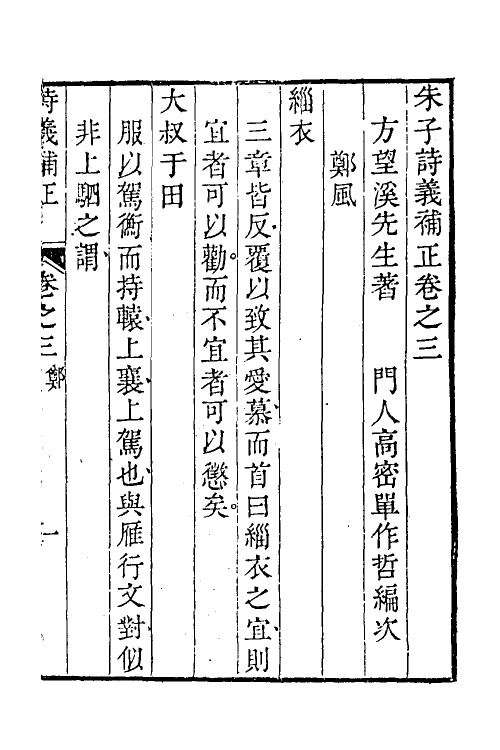 朱子詩義補正卷之三
方望溪先生著　　門人高密單作哲編次
鄭風
緇衣
三章皆反覆以致其愛慕而首曰緇衣之宜則
宜者可以勸而不宜者可以懲矣
大叔于田
服以駕衡而持轅上襄上駕也與雁行文對似
非上駟之謂
詩義補正　卷之三　鄭　一